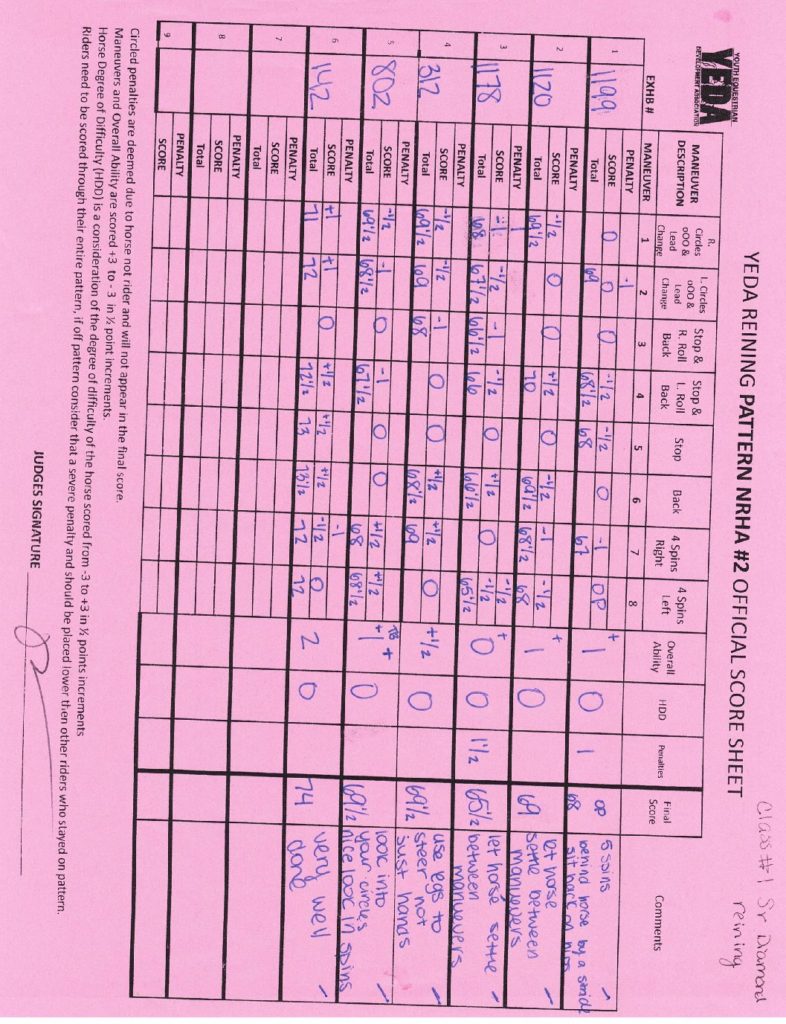 Class #1 Sr Diamond
reining
YOUTH EQUESTRIAN
YEDA
DEVELOPMENT ASSOCIATION
YEDA REINING PATTERN NRHA #2 OFFICIAL SCORE SHEET
MANEUVER DESCRIPTION R. Circles oOO & Lead Change L. Circles oOO & Lead Change Stop & R. Roll Back Stop & L. Roll Back Stop Back 4 Spins Right 4 Spins Left Overall Ability HDD Penalties Final Score Comments
EXHB # MANEUVER 1 2 3 4 5 6 7 8
PENALTY -1
1 1199 SCORE 0 0 0 -1/2 -1/2 0 -1 OP +1 0 1 OP 5 spins
Total 69 68 1/2 68 67 68 behind horse by a stride
PENALTY
2 1120 SCORE -1/2 0 0 +1/2 0 -1/2 -1 -1/2 +1 0 69 let horse
Total 69 1/2 70 69 1/2 68 1/2 68 settle between
manuevers
PENALTY 1 -1/2
3 1178 SCORE -1 -1/2 -1 -1/2 0 +1/2 0 -1/2 +0 0 1 1/2 65 1/2 let horse settle
Total 68 67 1/2 66 1/2 66 66 1/2 65 1/2 between
manuevers
PENALTY
4 312 SCORE -1/2 -1/2 -1 0 0 +1/2 +1/2 0 +1/2 0 69 1/2 use legs to
Total 69 1/2 69 68 68 1/2 69 steer not
just hands
PENALTY
5 802 SCORE -1/2 -1 0 -1 0 0 +1/2 +1/2 +1 0 69 1/2 look into
Total 69 1/2 68 1/2 67 1/2 68 68 1/2 your circles
nice look in spins
PENALTY -1
6 142 SCORE +1 +1 0 +1/2 +1/2 +1/2 -1/2 0 2 0 74 very well
Total 71 72 72 1/2 73 73 1/2 72 72 done
PENALTY
7 SCORE
Total
PENALTY
8 SCORE
Total
PENALTY
9 SCORE
Circled penalties are deemed due to horse not rider and will not appear in the final score.
Maneuvers and Overall Ability are scored +3 to - 3 in ½ point increments.
Horse Degree of Difficulty (HDD) is a consideration of the degree of difficulty of the horse scored from -3 to +3 in ½ points increments
Riders need to be scored through their entire pattern, if off pattern consider that a severe penalty and should be placed lower then other riders who stayed on pattern.
JUDGES SIGNATURE